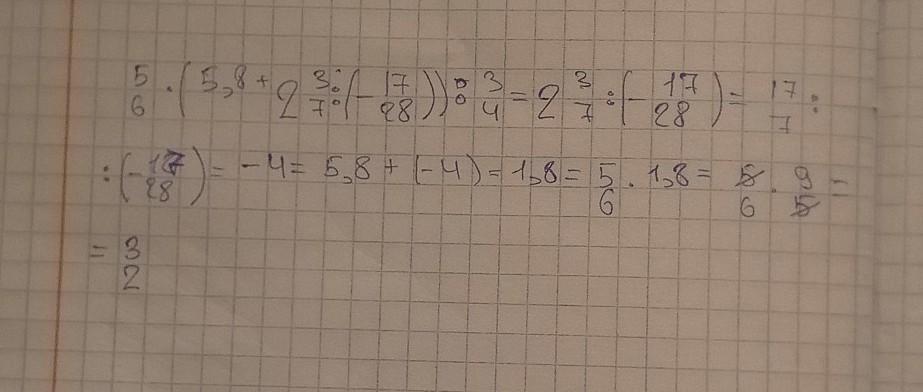 5/6 · (5,8 + 2 3/7 : (- 17/28)) : 3/4 = 2 3/7 : (- 17/28) = 17/7 :
: (- 17/28) = -4 = 5,8 + (-4) = 1,8 = 5/6 · 1,8 = 5/6 · 9/5 =
= 3/2